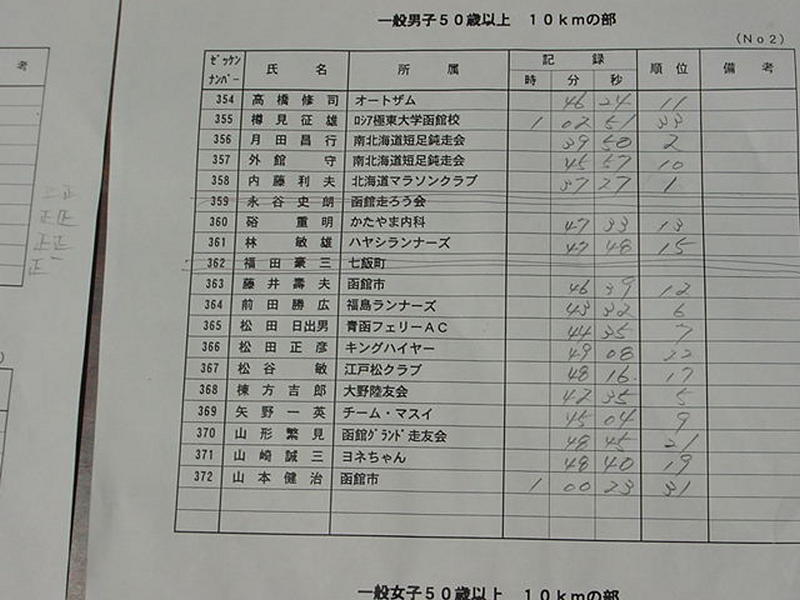 一般男子50歳以上 10kmの部
(No2)
考
ゼッケンナンバー 氏名 所属 記録 順位 備考
時 分 秒
354 高橋修司 オートザム 46 24 11
355 樽見征雄 ロシア極東大学函館校 1 02 51 33
356 月田昌行 南北海道短足鈍走会 39 50 2
357 外館守 南北海道短足鈍走会 45 57 10
358 内藤利夫 北海道マラソンクラブ 37 27 1
359 永谷史朗 函館走ろう会
360 硲重明 かたやま内科 47 33 13
361 林敏雄 ハヤシランナーズ 47 48 15
362 福田豪三 七飯町
363 藤井壽夫 函館市 46 39 12
364 前田勝広 福島ランナーズ 43 32 6
365 松田日出男 青函フェリーAC 44 35 7
366 松田正彦 キングハイヤー 49 08 22
367 松谷敏 江戸松クラブ 48 16 17
368 棟方吉郎 大野陸友会 42 35 5
369 矢野一英 チーム・マスイ 45 04 9
370 山形繁見 函館グランド走友会 48 45 21
371 山崎誠三 ヨネちゃん 48 40 19
372 山本健治 函館市 1 00 23 31
一般女子50歳以上 10kmの部